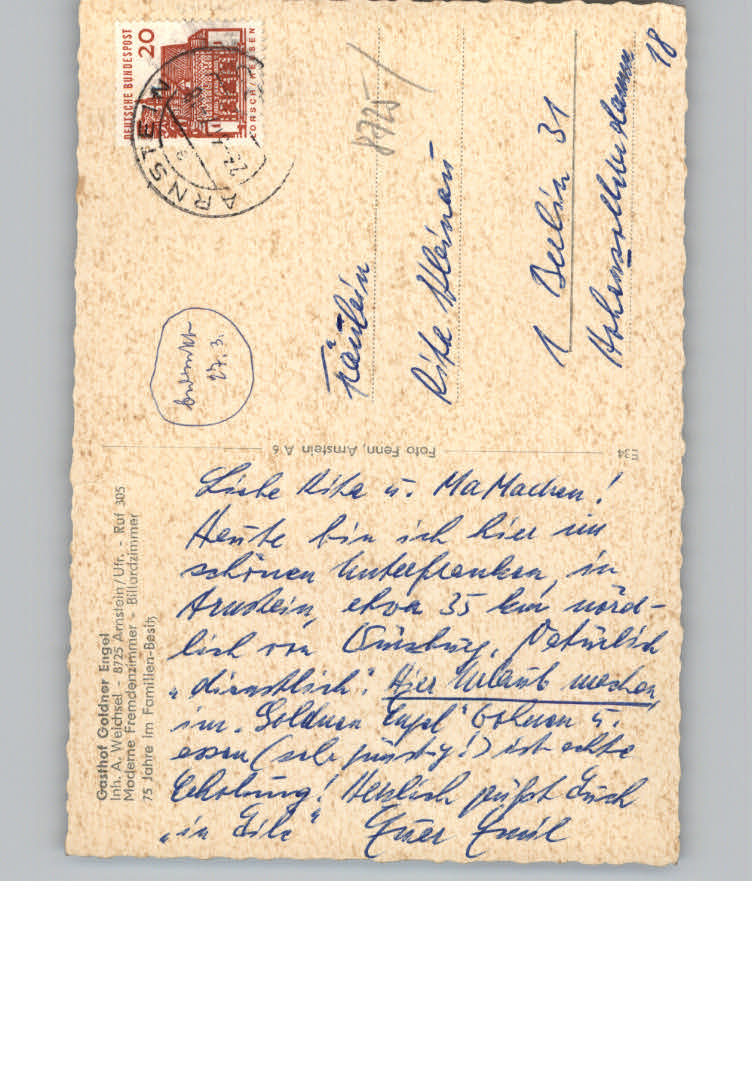 Gasthof Goldner Engel
Inh. A. Weichsel - 8725 Arnstein/Ufr. - Ruf 305
Moderne Fremdenzimmer - Billardzimmer
75 Jahre im Familien-Besitz
DEUTSCHE BUNDESPOST
20
LORSCH/HESSEN
ARNSTEIN
8725
27.3.
Fräulein
Rita Kleinau
1 Berlin 31
Hohenzollerndamm
18
Foto Fenn, Arnstein A 6
E 34
Liebe Rita u. MaMachen!
Heute bin ich hier im
schönen Unterfranken, in
Arnstein, etwa 35 km nörd-
lich von Würzburg. Natürlich
„dienstlich". Hier Urlaub machen,
im „Goldnen Engel" wohnen u.
essen (sehr günstig!) ist echte
Erholung! Herzlich grüßt Euch
„in Eile" Euer Emil